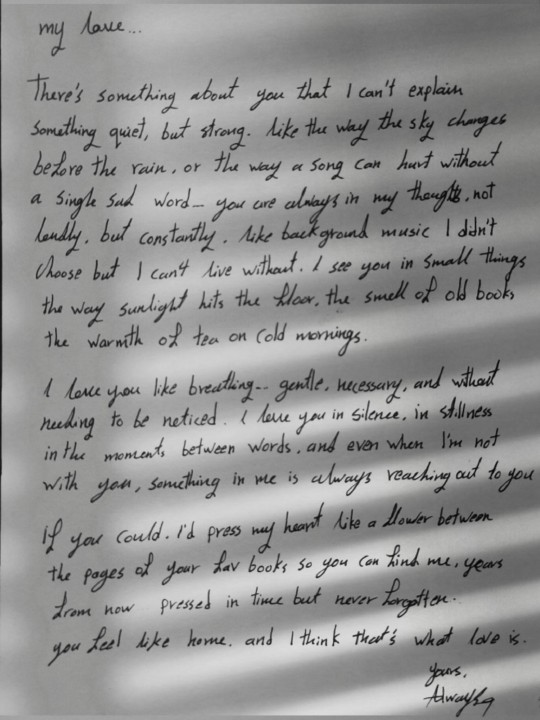 my love...
There's something about you that I can't explain
Something quiet, but strong. like the way the sky changes
before the rain, or the way a song can hurt without
a single sad word... you are always in my thoughts, not
loudly, but constantly, like background music I ddn't
choose but I can't live without. I see you in small things
the way sunlight hits the floor, the smell of old books
the warmth of tea on cold mornings.
I love you like breathing... gentle, necessary, and without
needing to be noticed. I love you in silence, in stillness
in the moments between words, and even when I'm not
with you, something in me is always reaching out to you
If you could. I'd press my heart like a flower between
the pages of your fav books so you can find me, years
from now pressed in time but never forgotten.
you feel like home. and I think that's what love is.
yours,